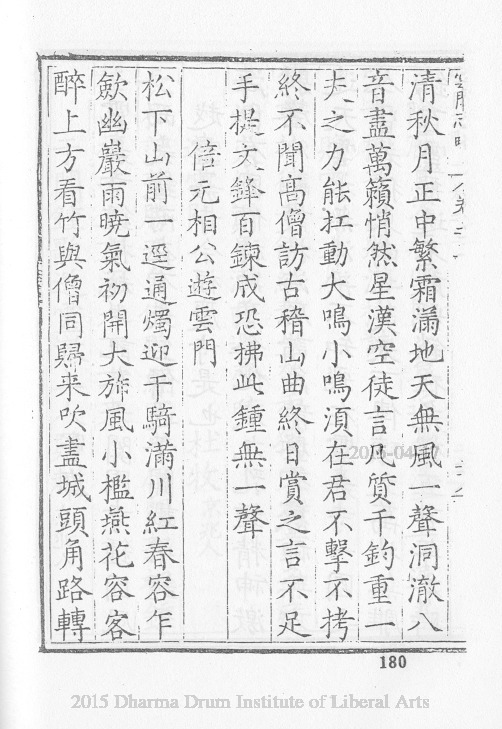 清秋月正中繁霜滿地天無風一聲洞澈八
音盡萬籟悄然星漢空徒言凡質千鈞重一
夫之力能扛動大鳴小鳴須在君不擊不考
終不聞高僧訪古稽山曲終日賞之言不足
手提文鋒百鍊成恐拂此鍾無一聲
陪元相公遊雲門
松下山前一逕通燭迎千騎滿川紅春容乍
歛幽巖雨曉氣初開大旆風小檻燕花容客
醉上方看竹與僧同歸来吹盡城頭角路轉
180
2015 Dharma Drum Institute of Liberal Arts